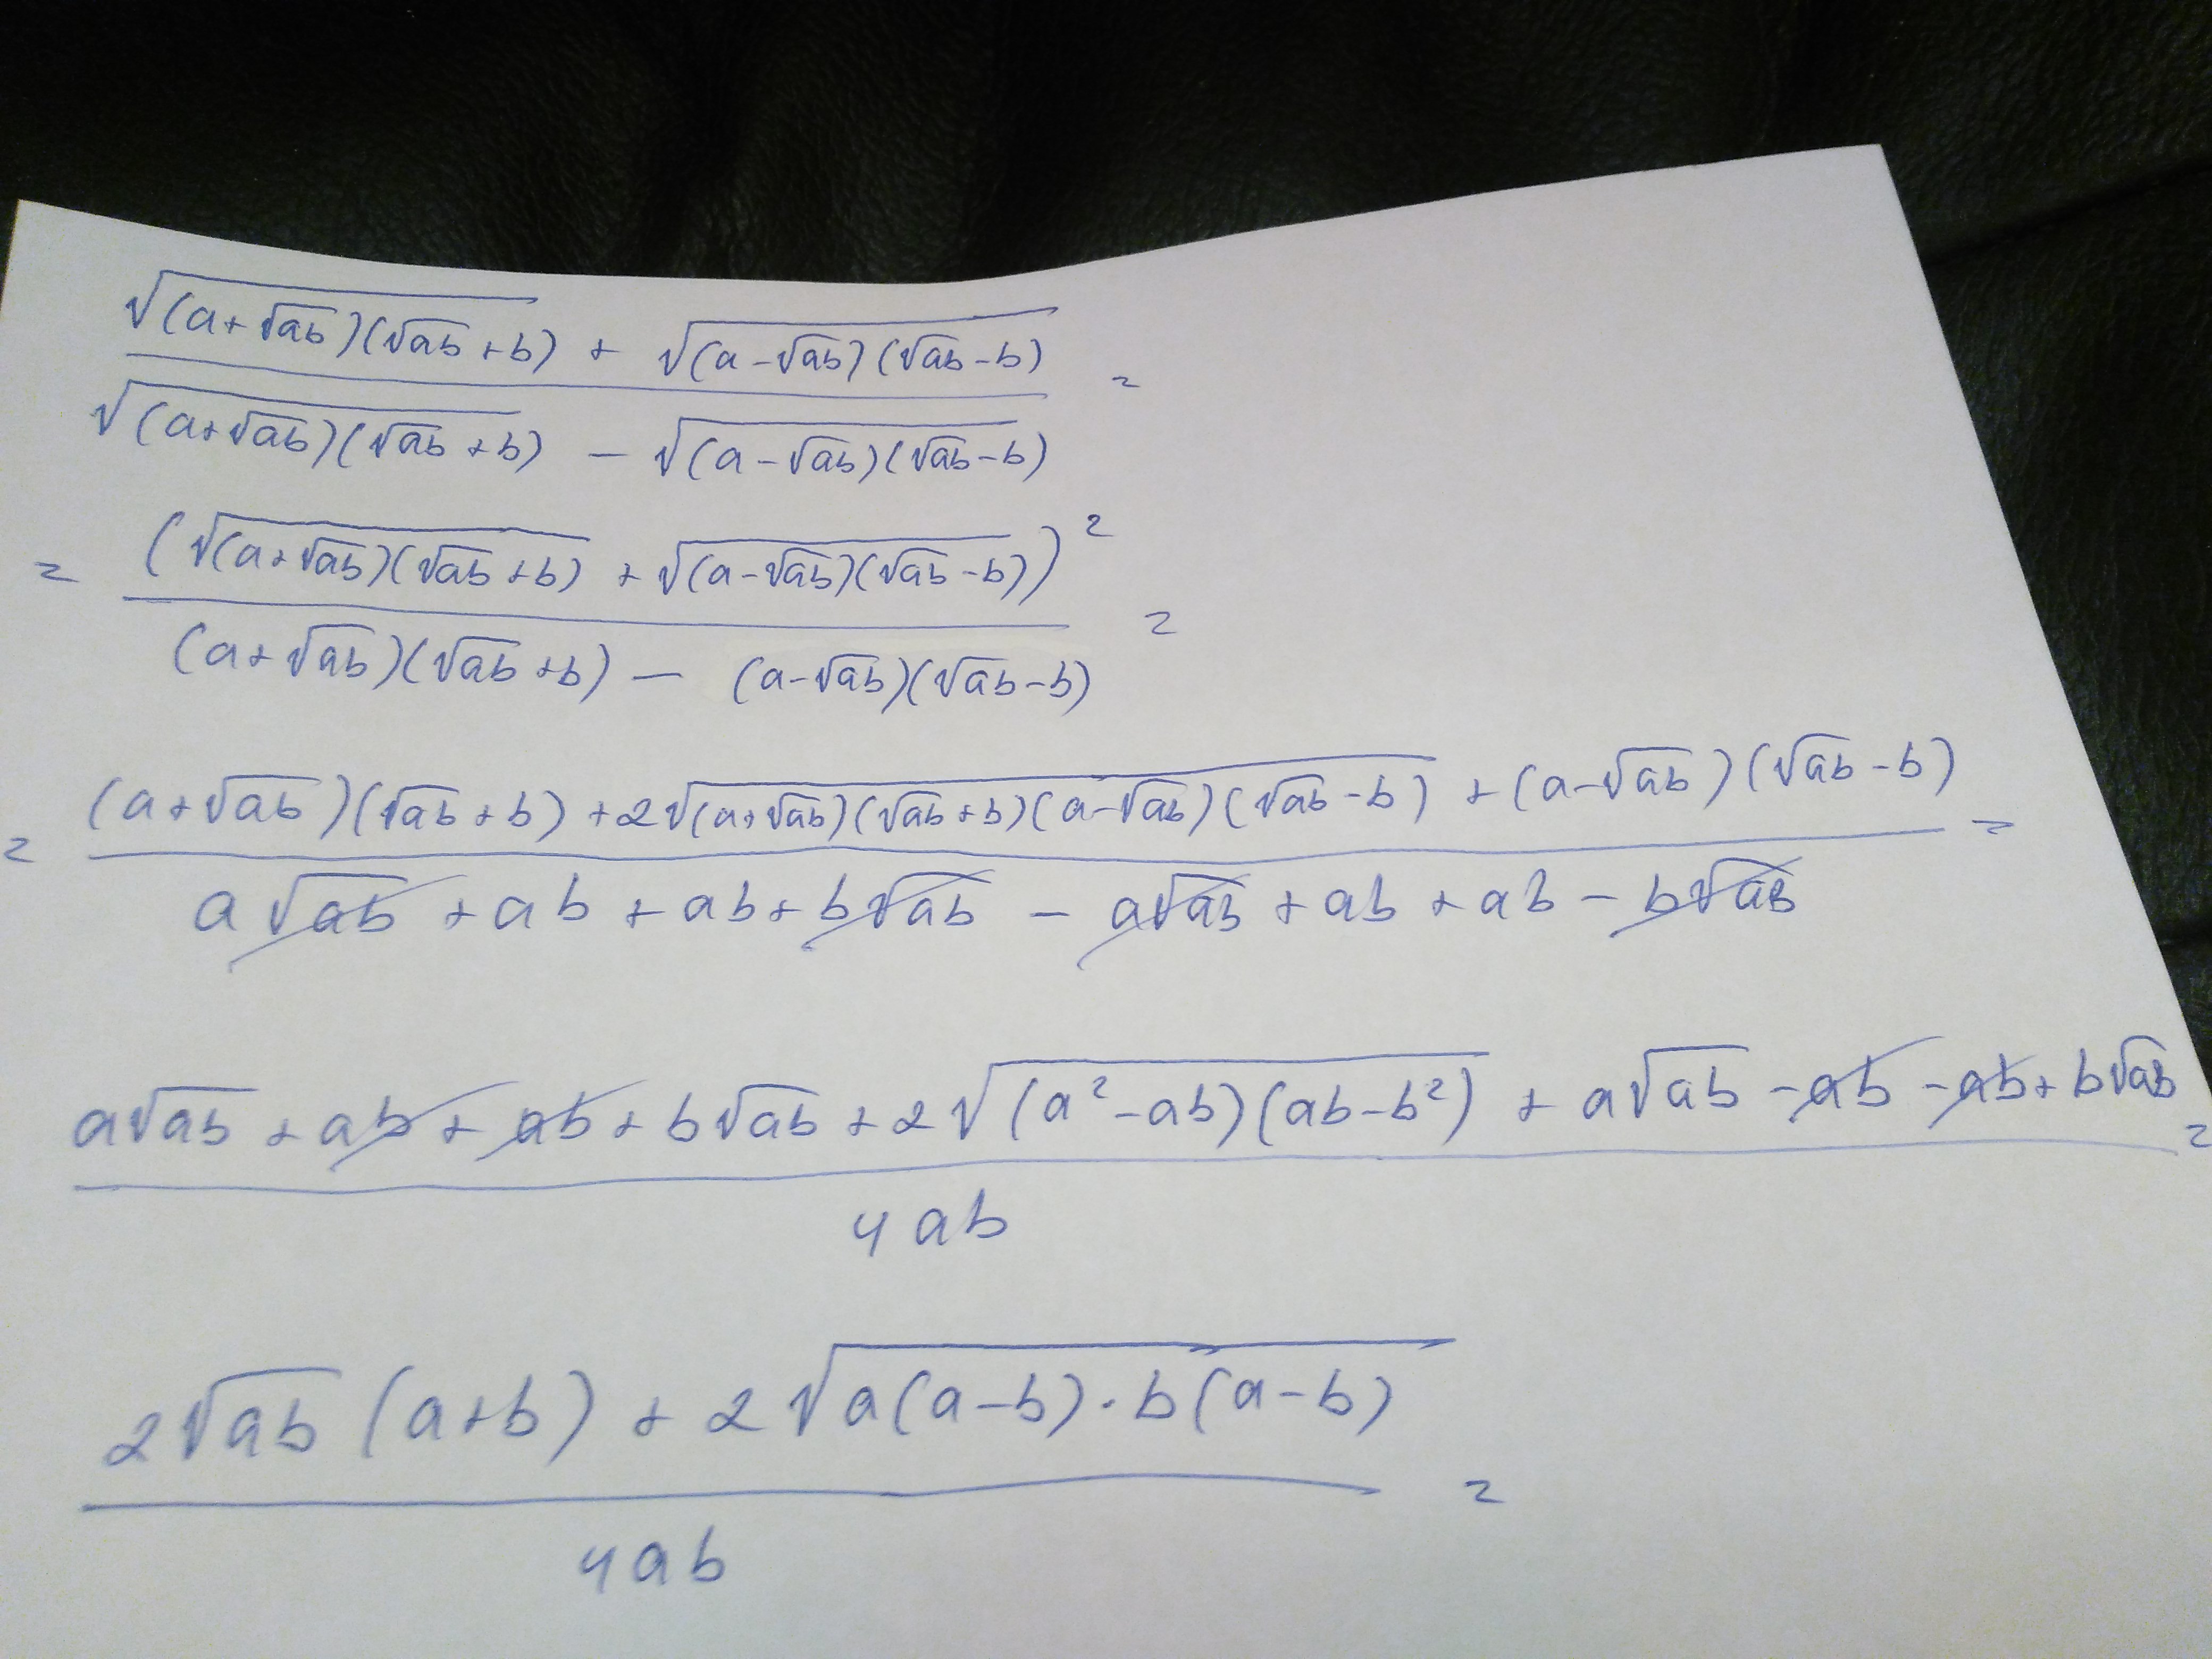 (√((a+√ab)(√ab+b)) + √((a-√ab)(√ab-b))) / (√((a+√ab)(√ab+b)) - √((a-√ab)(√ab-b))) =
= (√((a+√ab)(√ab+b)) + √((a-√ab)(√ab-b)))² / ((a+√ab)(√ab+b) - (a-√ab)(√ab-b)) =
= ((a+√ab)(√ab+b) + 2√((a+√ab)(√ab+b)(a-√ab)(√ab-b)) + (a-√ab)(√ab-b)) / (a√ab + ab + ab + b√ab - a√ab + ab + ab - b√ab) =
(a√ab + ab + ab + b√ab + 2√((a²-ab)(ab-b²)) + a√ab - ab - ab + b√ab) / 4ab =
(2√ab (a+b) + 2√(a(a-b)·b(a-b))) / 4ab =